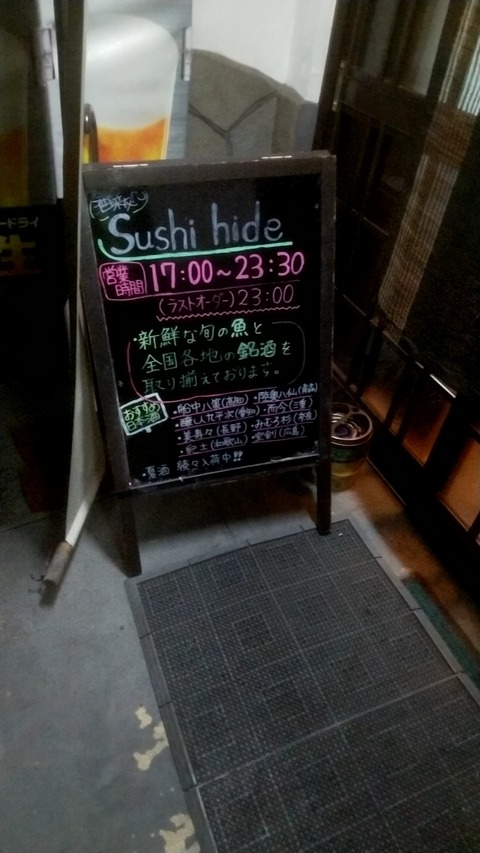 Sushi hide
営業時間 17:00～23:30
(ラストオーダー)23:00
・新鮮な旬の魚と
全国各地の銘酒を
取り揃えております。
おすすめ日本酒
・船中八策(高知) ・陸奥八仙(青森)
・醸し人九平次(愛知) ・而今(三重)
・美寿々(長野) ・みむろ杉(奈良)
・紀土(和歌山) ・宝剣(広島)
・夏酒 続々入荷中!!
ードライ
生